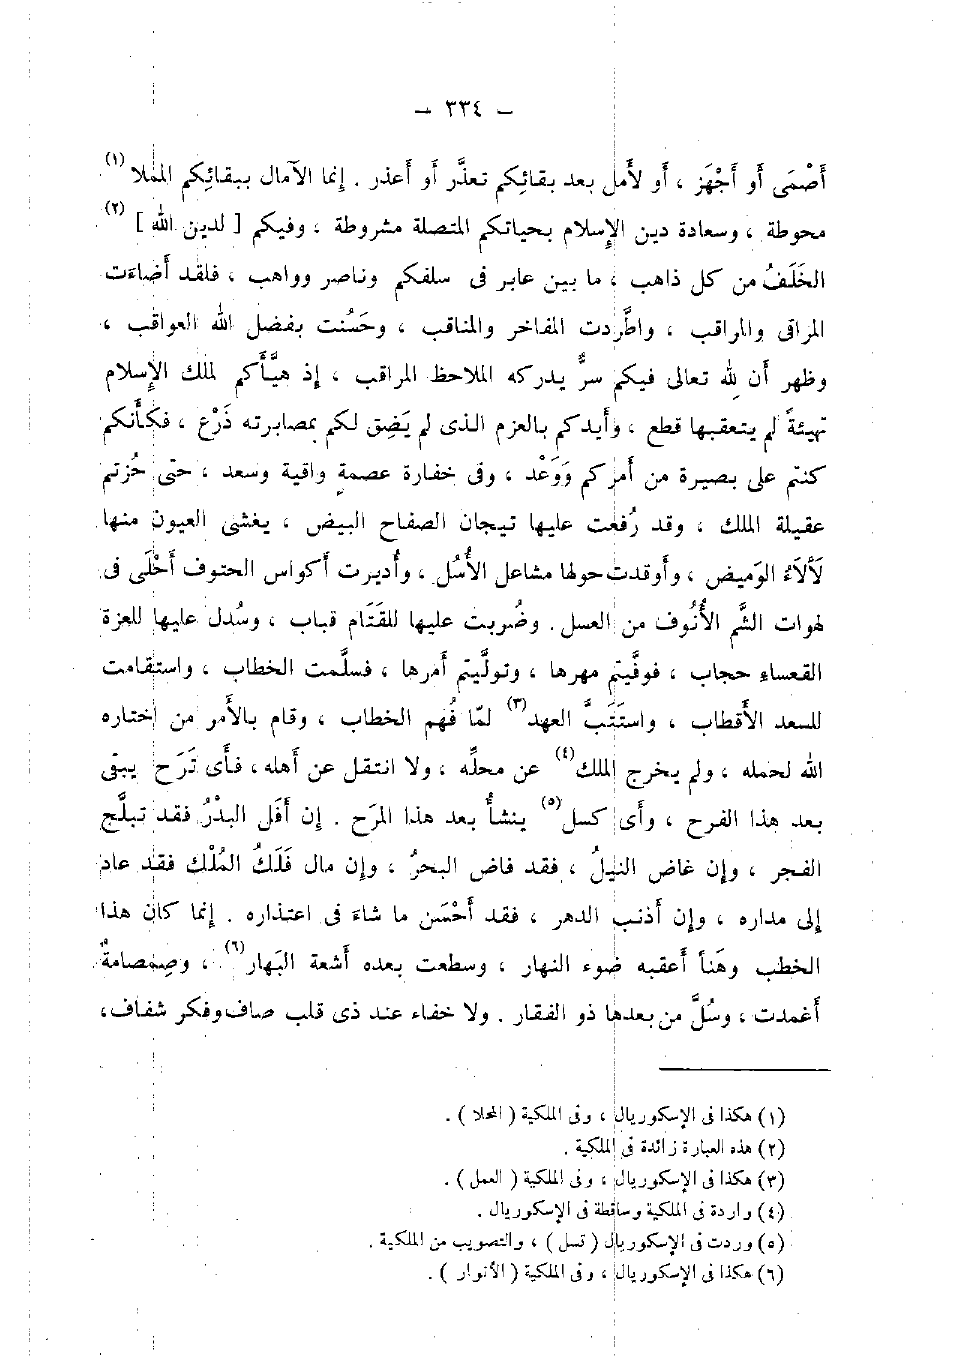 — ٣٣٤ —
أَصْمَى أو أَجْهَز ، أو لأَمل بعد بقائِكم تعذَّر أو أَعذر . إنما الآمال ببقائِكم الملا (١)
محوطة ، وسعادة دين الإسلام بحياتكم المتصلة مشروطة ، وفيكم [ لدين الله ] (٢)
الخَلَفُ من كل ذاهب ، ما بين عابر فى سلفكم وناصر وواهب ، فلقد أَضاءَت
المراقى والمراقب ، واطَّردت المفاخر والمناقب ، وحَسُنت بفضل الله العواقب ،
وظهر أَن لله تعالى فيكم سرٌّ يدركه الملاحظ المراقب ، إذ هيَّأَكم لملك الإسلام
تهيئةً لم يتعقبها قطع ، وأَيدكم بالعزم الذى لم يَضِق لكم بمصابرته ذَرْع ، فكأَنكم
كنتم على بصيرة من أَمركم وَوَعْد ، وفى خفارة عصمةٍ واقية وسعد ، حتى حُزتم
عقيلة الملك ، وقد رُفعت عليها تيجان الصفاح البيض ، يغشى العيون منها
لَأْلَاءُ الوَميض ، وأَوقدت حولها مشاعل الأُسُل ، وأُديرت أَكواس الحتوف أَحْلَى فى
لهوات الشَّم الأُنُوف من العسل . وضُربت عليها للقَتَام قباب ، وسُدل عليها للعزة
القعساءِ حجاب ، فوفَّيتم مهرها ، وتولَّيتم أَمرها ، فسلَّمت الخطاب ، واستقامت
للسعد الأَقطاب ، واستَتَبَّ العهد(٣) لمّا فُهم الخطاب ، وقام بالأَمر من اختاره
الله لحمله ، ولم يخرج الملك(٤) عن محلِّه ، ولا انتقل عن أَهله ، فأَى تَرَح يبقى
بعد هذا الفرح ، وأَى كسل(٥) ينشأُ بعد هذا المرَح . إن أَفَل البدْرُ فقد تبلَّج
الفجر ، وإن غاض النيلُ ، فقد فاض البحرُ ، وإن مال فَلَكُ المُلْك فقد عاد
إلى مداره ، وإن أَذنب الدهر ، فقد أَحْسَن ما شاءَ فى اعتذاره . إنما كان هذا
الخطب وهَناً أَعقبه ضوء النهار ، وسطعت بعده أَشعة البَهار(٦) ، وصِمصامةٌ
أُغمدت ، وسُلَّ من بعدها ذو الفقار . ولا خفاء عند ذى قلب صاف وفكر شفاف،
(١) هكذا فى الإسكوريال ، وفى الملكية ( المحلا ) .
(٢) هذه العبارة زائدة فى الملكية .
(٣) هكذا فى الإسكوريال ، وفى الملكية ( العمل ) .
(٤) واردة فى الملكية وساقطة فى الإسكوريال .
(٥) وردت فى الإسكوريال ( تسل ) ، والتصويب من الملكية .
(٦) هكذا فى الإسكوريال ، وفى الملكية ( الأنوار ) .